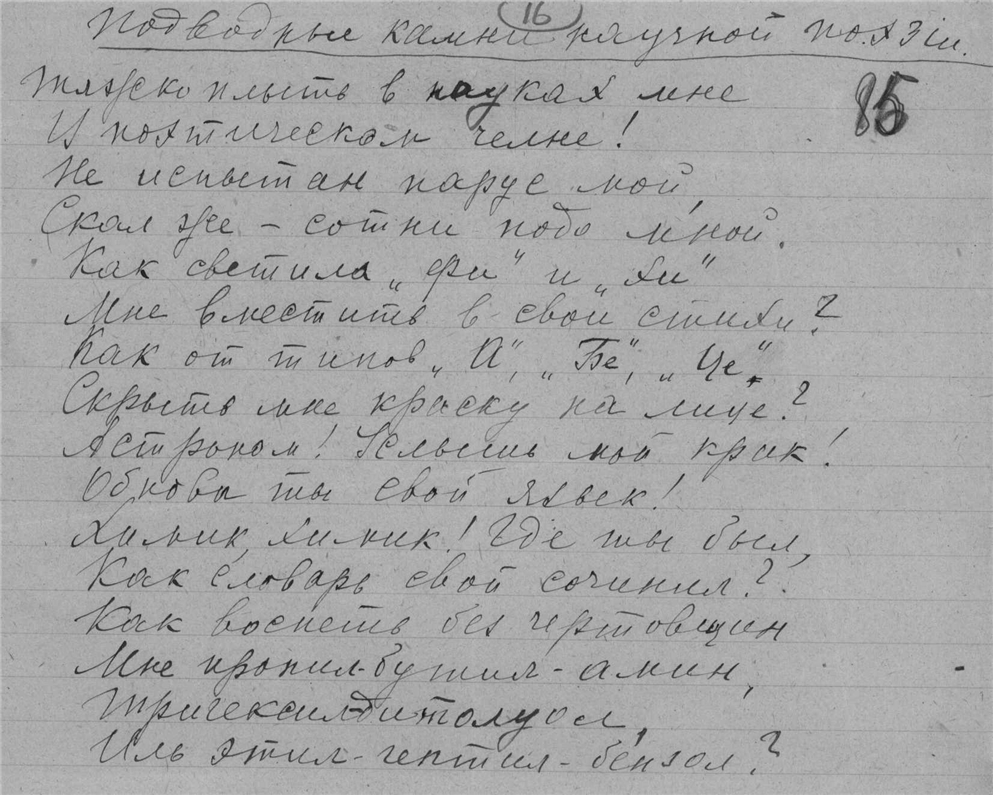 16
Подводные камни научной поэзiи.
85
Тяжко плыть в науках мне
И поэтическом челне!
Не испытан парус мой,
Скал же – сотни подо мной.
Как светила „Фи" и „Хи"
Мне вместить в свои стихи?
Как от типов „А", „Бе", „Це",
Скрыть мне краску на лице?
Астроном! Услышь мой крик!
Обнови ты свой язык!
Химик, химик! Где ты был,
Как словарь свой сочинил?
Как воспеть без чертовщин
Мне пропил-бутил-амин,
Тригексилдитолуол,
Иль этил-гептил-бензол?